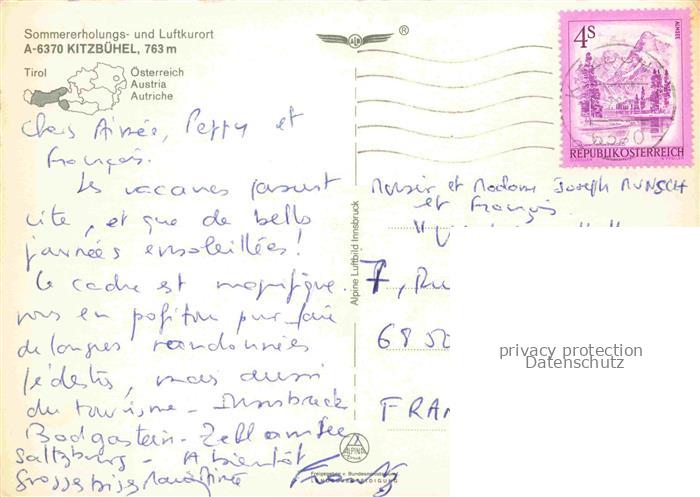 Sommererholungs- und Luftkurort
A-6370 KITZBÜHEL, 763 m
Tirol
Österreich
Austria
Autriche
Chers Aimée, Peppy et
François.
Les vacances passent
vite, et que de belles
journées ensoleillées!
Le cadre est magnifique.
pour faire
de longues randonnées
pédestres, mais aussi
du tourisme - Innsbruck
Badgastein - Zell am See
Saltzburg - A bientôt
Grosses bises
ALPINA
Alpine Luftbild Innsbruck
4 S
ALMSEE
REPUBLIK ÖSTERREICH
Monsieur et Madame Joseph MUNSCH
et François
7, Ru
68 50
FRAN
privacy protection
Datenschutz